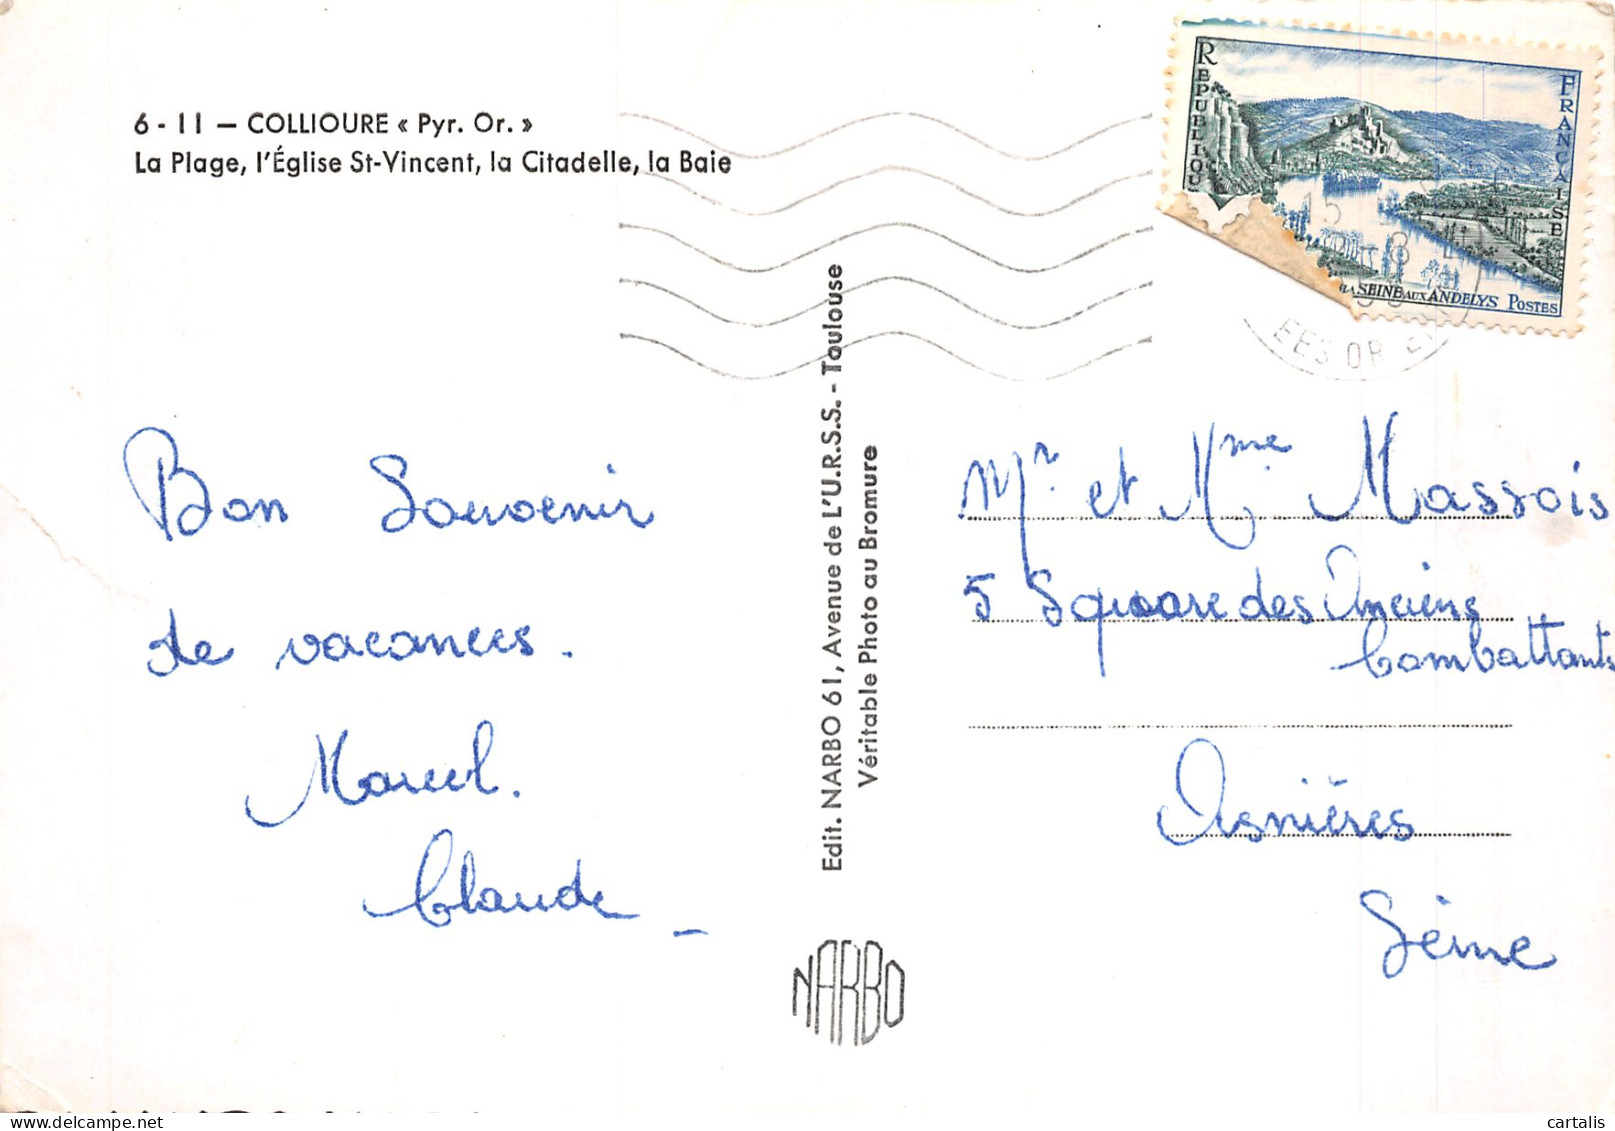 6 - 11 — COLLIOURE « Pyr. Or. »
La Plage, l'Église St-Vincent, la Citadelle, la Baie
RÉPUBLIQU
FRANÇAISE
LA SEINE AUX ANDELYS POSTES
15
8
EES OR
Bon Souvenir
de vacances.
Marcel.
Claude_
Edit. NARBO 61, Avenue de L'U.R.S.S. - Toulouse
Véritable Photo au Bromure
NARBO
Mr. et Mme Massois
5 Square des Anciens
Combattants
Asnières
Seine
delcampe.net
cartalis